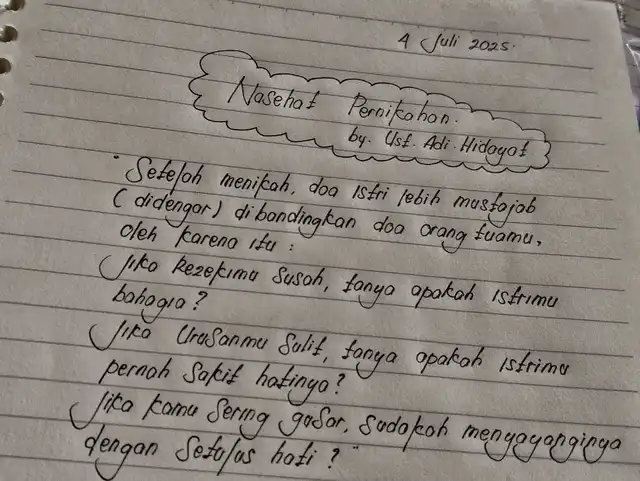 4 Juli 2025.
Nasehat Pernikahan.
by. Ust. Adi. Hidayat
"Setelah menikah, doa istri lebih mustajab
(didengar) dibandingkan doa orang tuamu,
oleh karena itu :
Jika Rezekimu Susah, tanya apakah istrimu
bahagia ?
Jika Urusanmu Sulit, tanya apakah istrimu
pernah Sakit hatinya ?
Jika kamu Sering gusar, Sudakah menyayanginya
dengan Setulus hati ? "